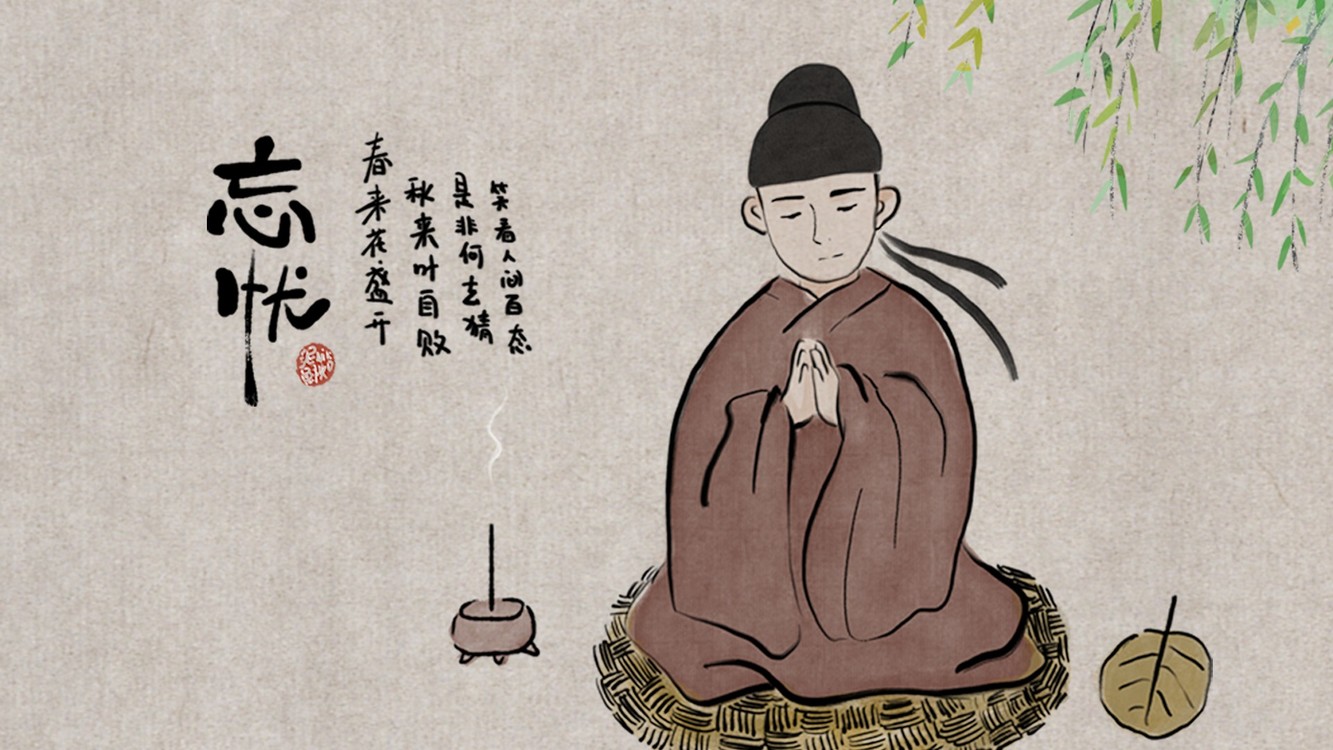 忘忧
春来花盛开
秋来叶自败
是非何去猜
笑看人间百态